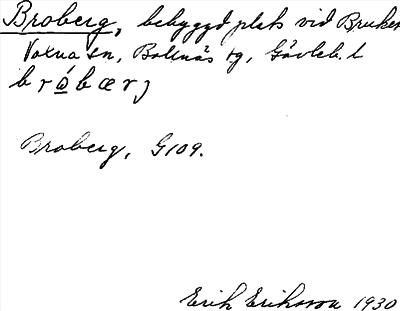 Broberg, bebyggd plats vid Bruket
Voxna sn, Bollnäs tg, Gävleb. l
b r ó b æ r j
Broberg, G109.
Erik Eriksson 1930